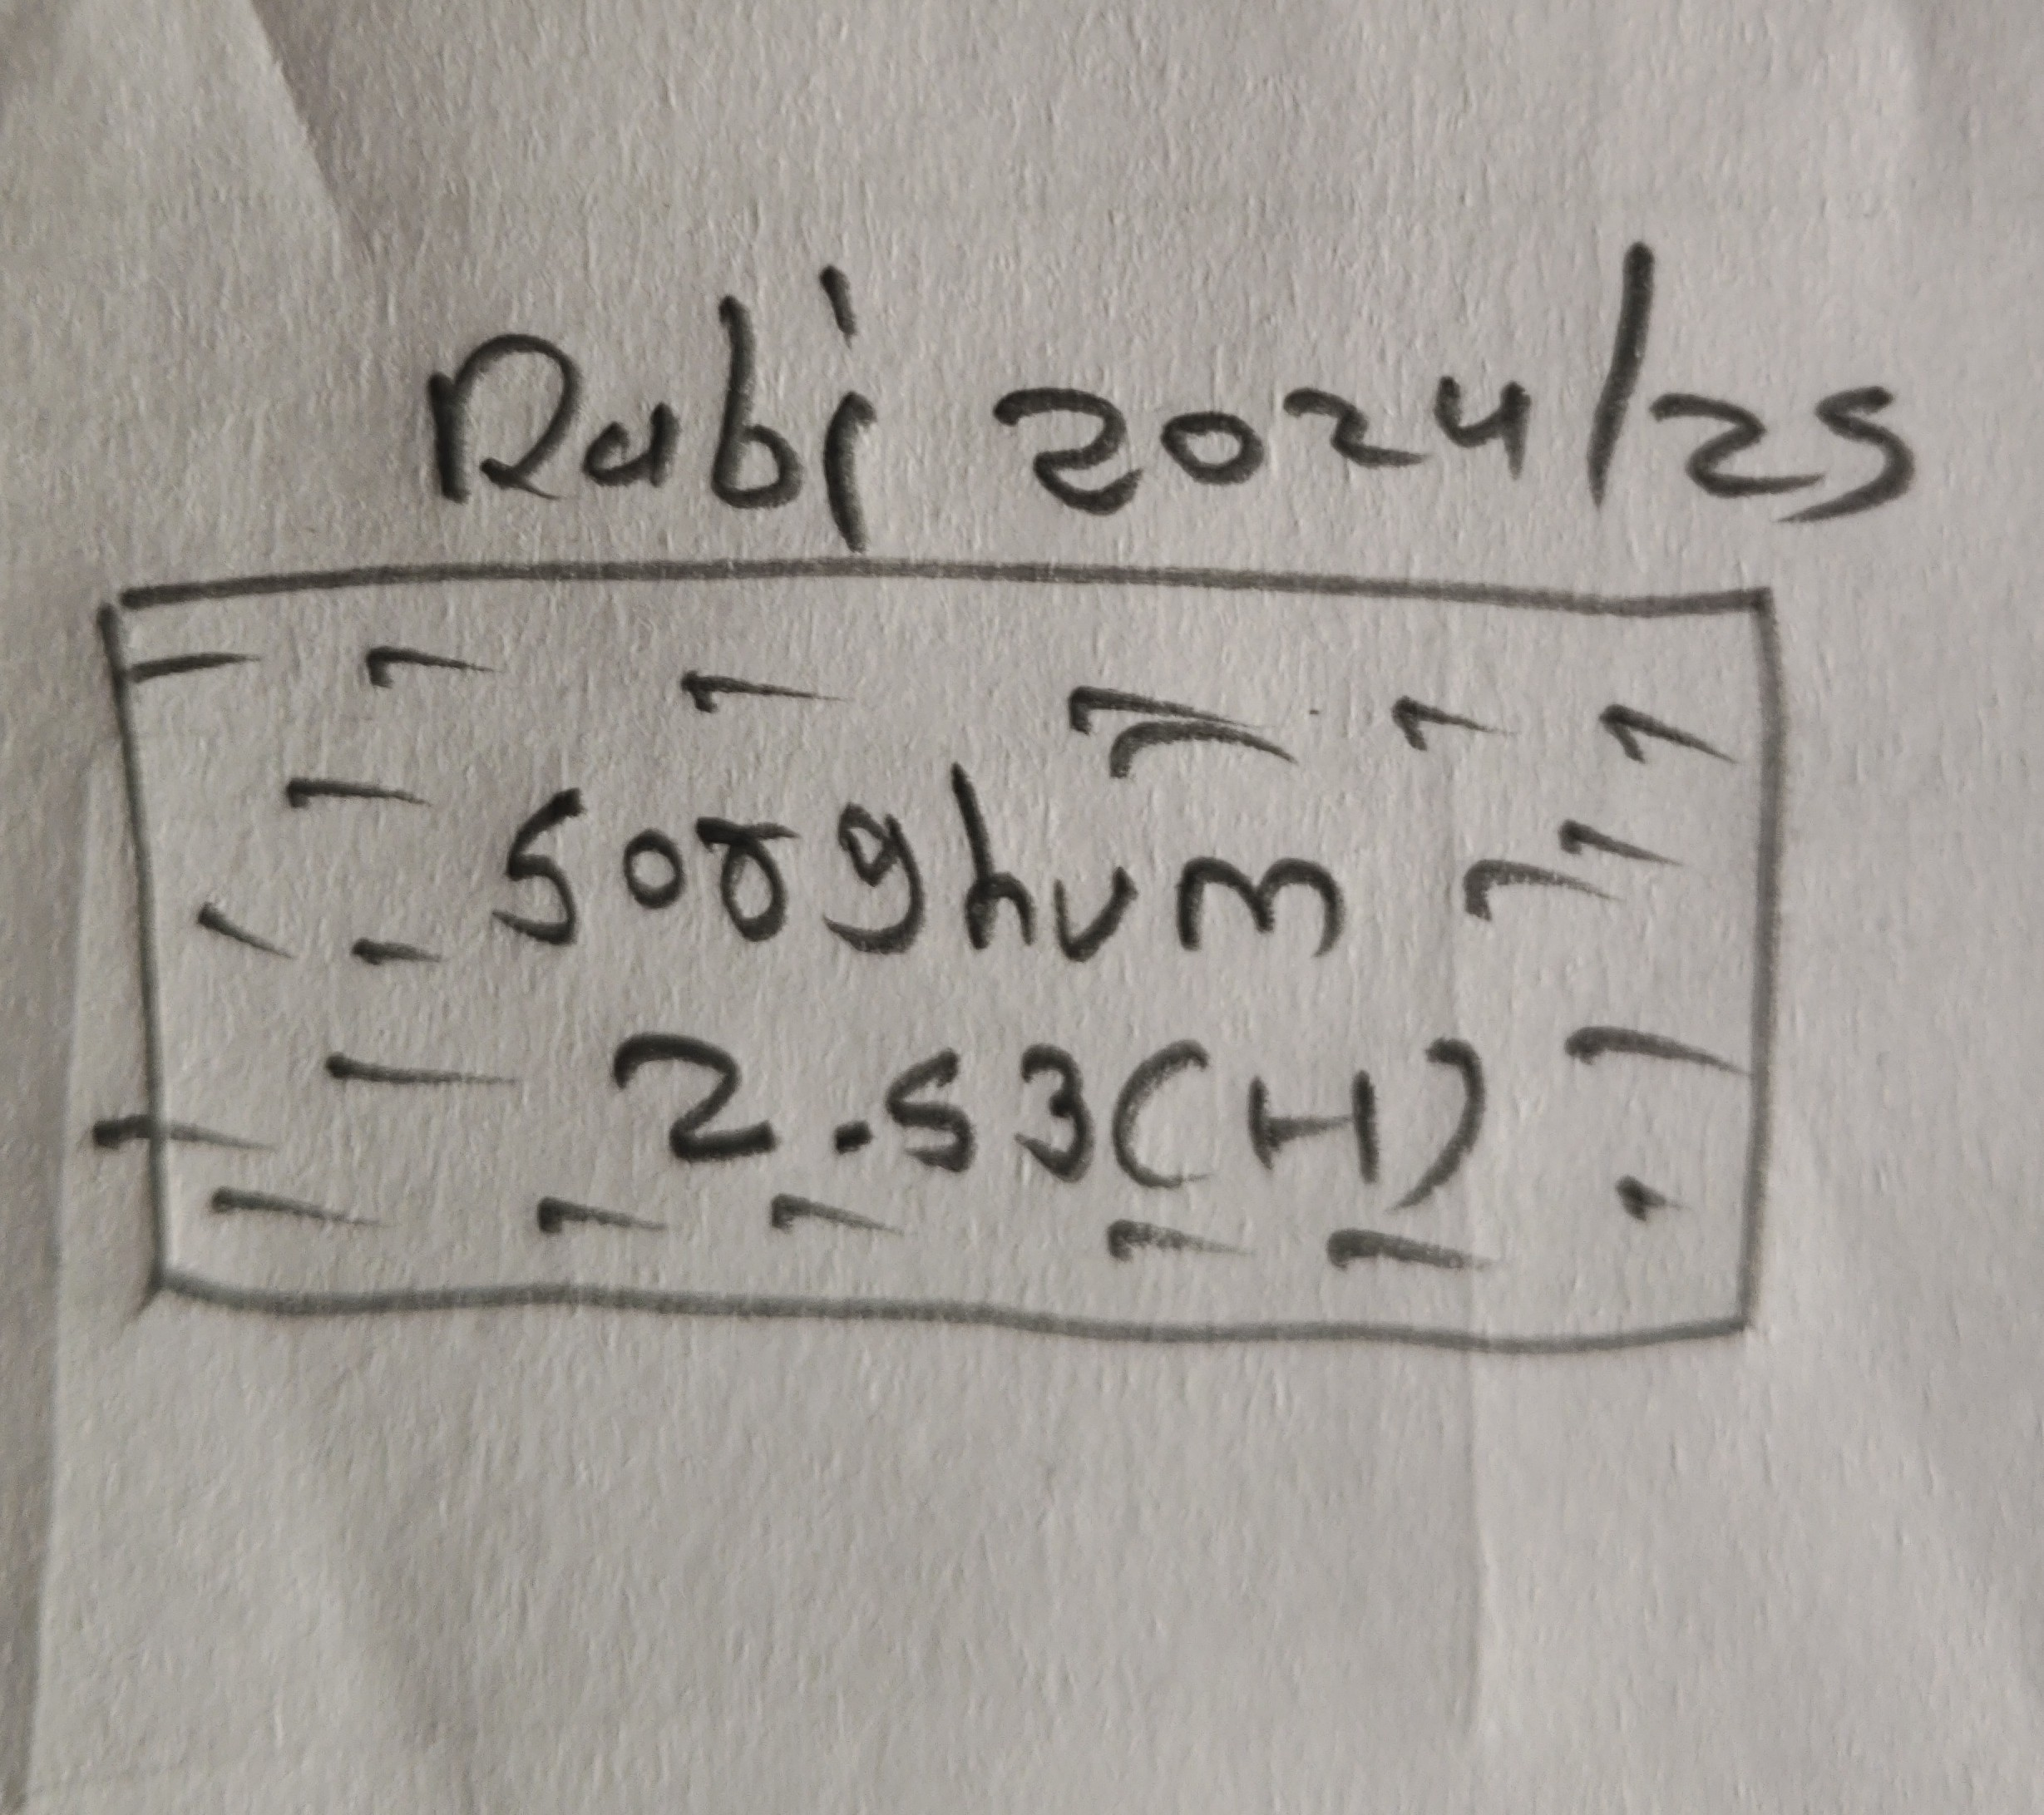 Rabi 2024/25
Sorghum
2.53(H)